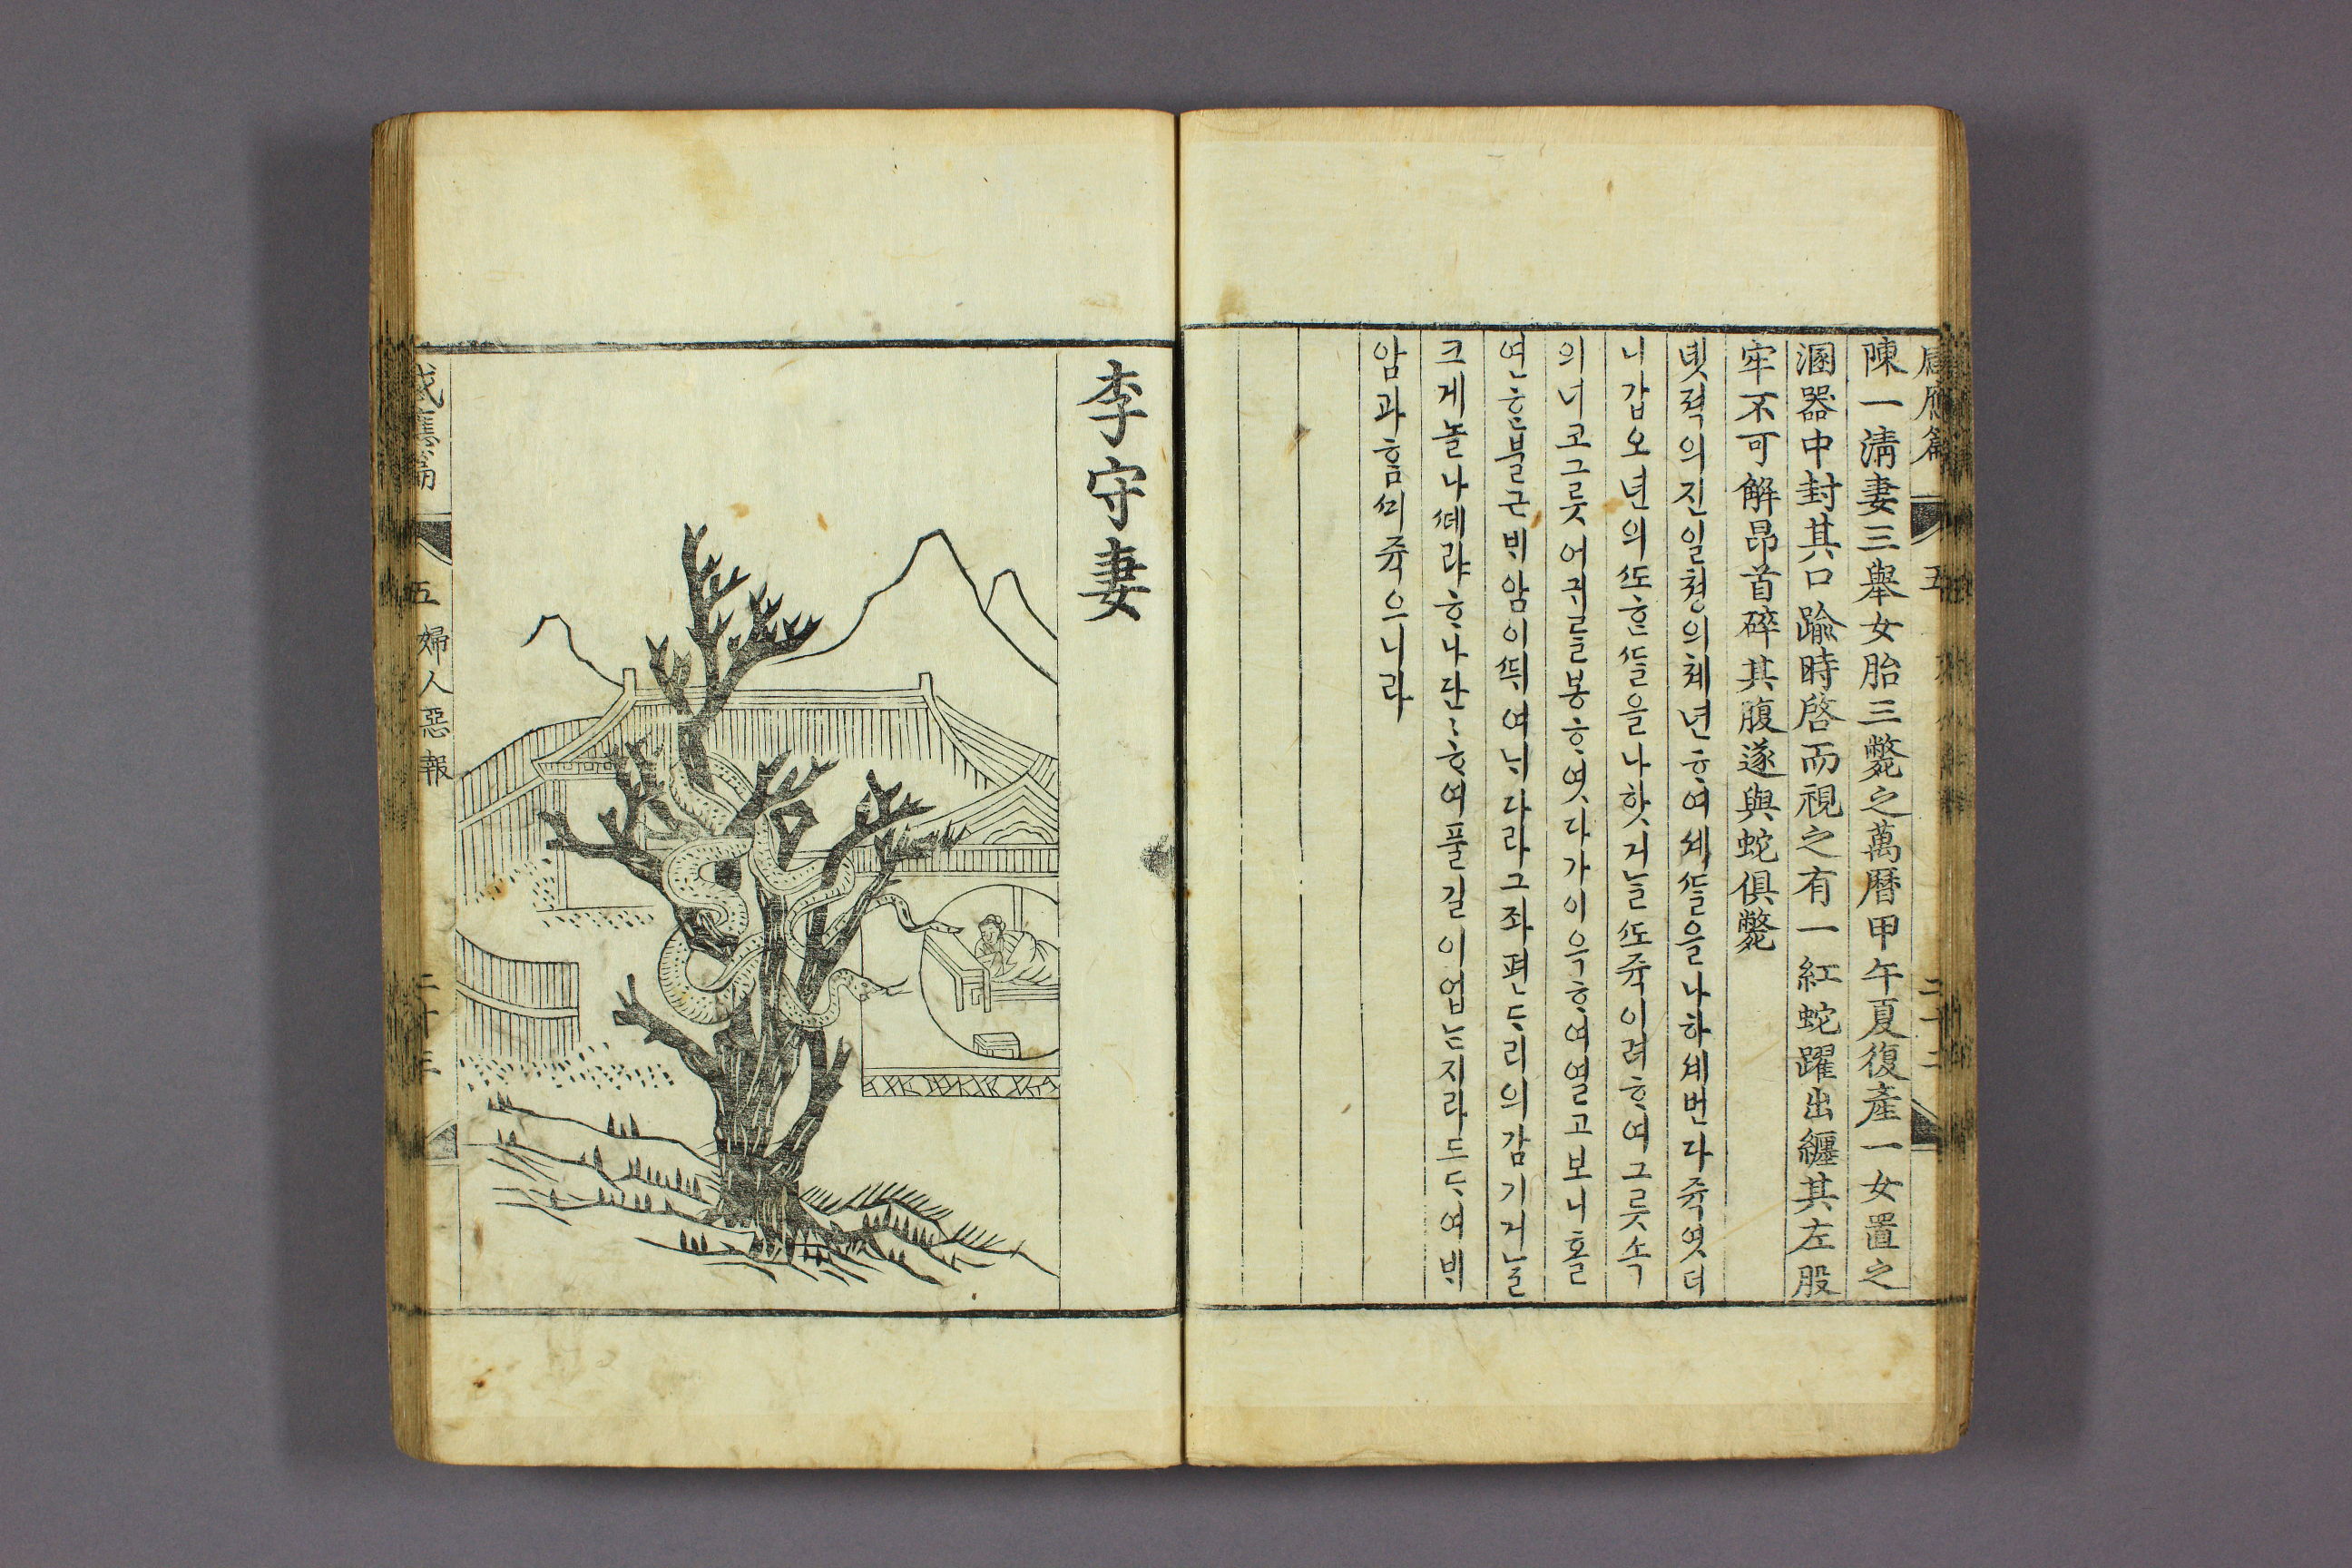 陳一淸妻三舉女胎三斃之萬曆甲午夏復產一女置之
溷器中封其口踰時啓而視之有一紅蛇躍出纏其左股
牢不可解昂首碎其腹遂與蛇俱斃
녯젹의진일쳥의쳬년ᄒᆞ여셰ᄯᆞᆯ을나하셰번다쥭엿더
니갑오년의ᄯᅩᄒᆞᆫᄯᆞᆯ을나핫거ᄂᆞᆯᄯᅩ쥭이려ᄒᆞ여그릇속
의너코그릇어귀ᄅᆞᆯ봉ᄒᆞ엿다가이윽ᄒᆞ여열고보니홀
연ᄒᆞᆫ블근ᄇᆡ암이ᄯᅱ여ᄂᆡ다라그좌편ᄃᆞ리의감기거ᄂᆞᆯ
크게놀나ᄯᅦ랴ᄒᆞ나단〻ᄒᆞ여풀길이업ᄂᆞᆫ지라드ᄃᆞ여ᄇᆡ
암과ᄒᆞᆷᄭᅴ쥭으니라
李守妻
感應篇
五
婦人惡報
二十三